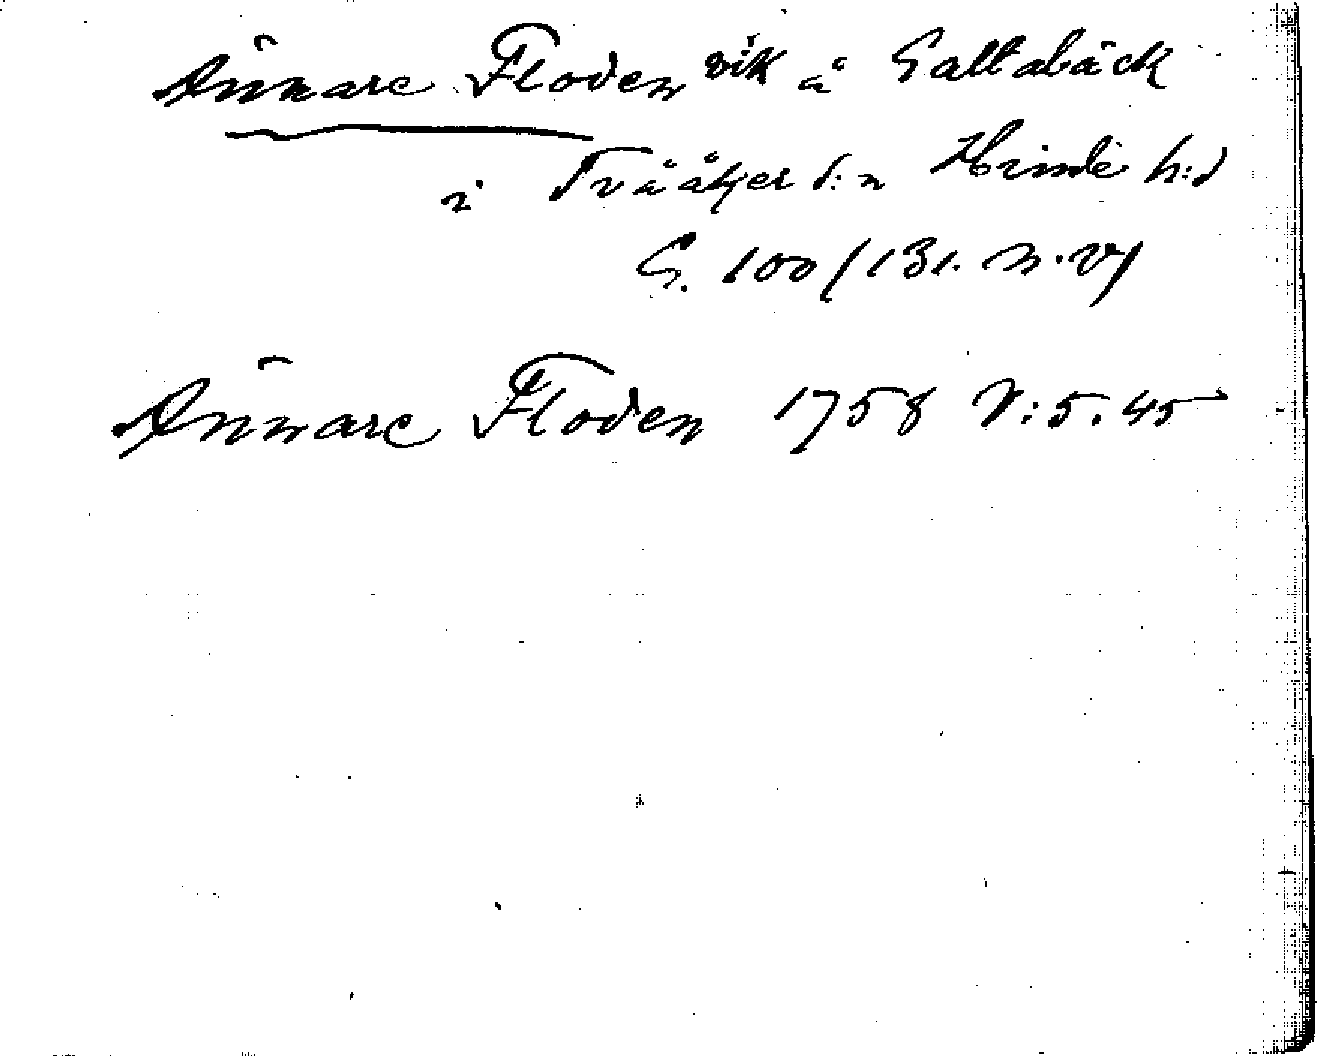 Ånnare Floden vik å Galtabäck
i Tvååker s:n Himle h:d
G. 100/131. N.V/
Ånnare Floden 1758 V:5.45